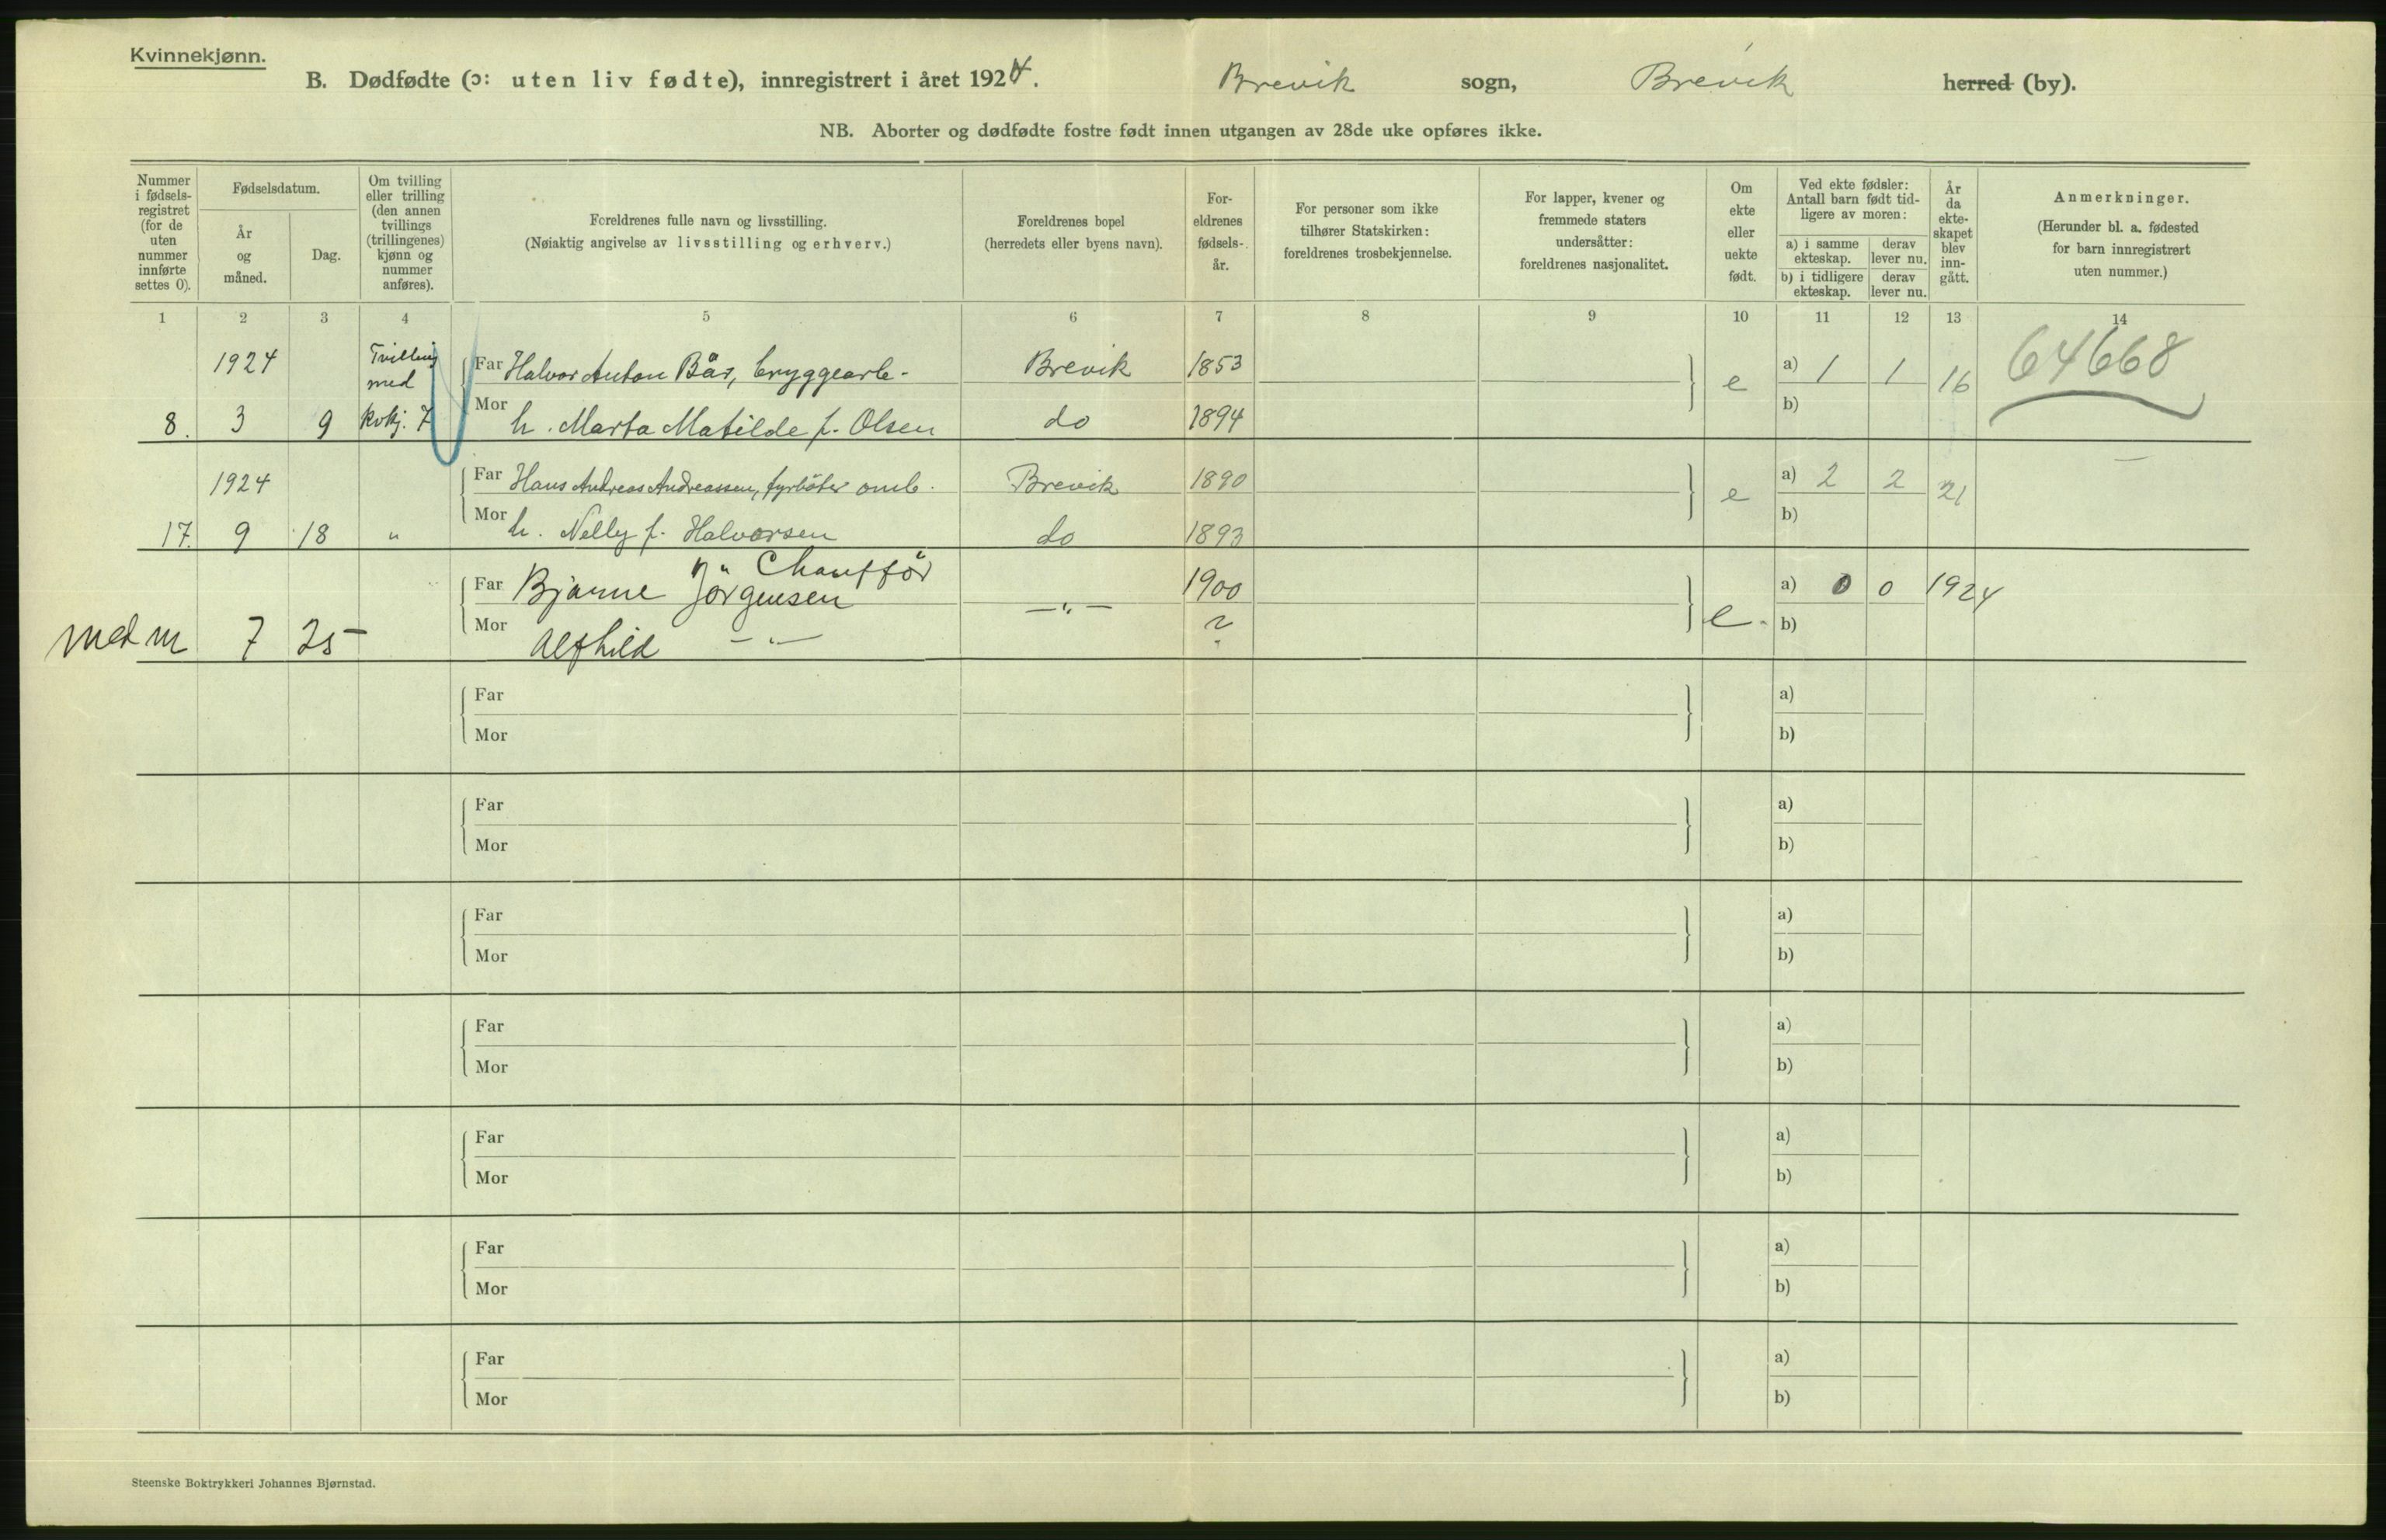 Kvinnekjønn.
B. Dødfødte (ɔ: uten liv fødte), innregistrert i året 1924. Brevik sogn, Brevik herred (by).
NB. Aborter og dødfødte fostre født innen utgangen av 28de uke opføres ikke.
Nummer
i fødsels-
registret
(for de
uten
nummer
innførte
settes 0).
Fødselsdatum.
År
og
måned.
Dag.
Om tvilling
eller trilling
(den annen
tvillings
(trillingenes)
kjønn og
nummer
anføres).
Foreldrenes fulle navn og livsstilling.
(Nøiaktig angivelse av livsstilling og erhverv.)
Foreldrenes bopel
(herredets eller byens navn).
For-
eldrenes
fødsels-
år.
For personer som ikke
tilhører Statskirken:
foreldrenes trosbekjennelse.
For lapper, kvener og
fremmede staters
undersåtter:
foreldrenes nasjonalitet.
Om
ekte
eller
uekte
født.
Ved ekte fødsler:
Antall barn født tid-
ligere av moren:
a) i samme
ekteskap.
derav
lever nu.
b) i tidligere
ekteskap.
derav
lever nu.
År
da
ekte-
skapet
blev
inn-
gått.
Anmerkninger.
(Herunder bl. a. fødested
for barn innregistrert
uten nummer.)
1 2 3 4 5 6 7 8 9 10 11 12 13 14
1924 Tvilling Far Halvor Anton Bås, bryggearb. Brevik 1853 e a) 1 1 16 64668
med
8. 3 9 kvkj. 7 Mor h. Marta Matilde f. Olsen do 1894 b)
1924 Far Hans Andreas Andreassen, fyrbøter omb. Brevik 1890 e a) 2 2 21 —
17. 9 18 " Mor h. Nelly f. Halvorsen do 1893 b)
Chaufför
Far Bjarne Jörgensen —"— 1900 e. a) 0 0 1924
med m 7 25 Mor Alfhild —"— ? b)
Far a)
Mor b)
Far a)
Mor b)
Far a)
Mor b)
Far a)
Mor b)
Far a)
Mor b)
Far a)
Mor b)
Far a)
Mor b)
Steenske Boktrykkeri Johannes Bjørnstad.